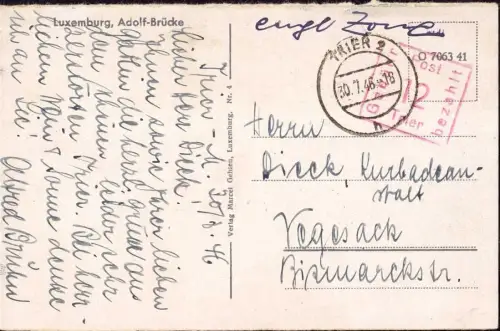 Luxemburg, Adolf-Brücke
engl Zone
O 7063 41
TRIER 2
30.7.46-18
Gebühr
Post
12
bezahlt
Trier
Trier - M. 30/7.46
Lieber Herr Dieck!
Ihnen sowie Ihrer lieben
Gattin die herzl. Grüsse aus
dem schönen leider sehr
zerstörten Trier. Bei herr-
lichem Wein & Sonne denke
ich an Sie!
Verlag Marcel Gehlen, Luxemburg, Nr. 4
Herrn
Dieck, Kurbadean-
stalt
Vegesack
Bismarckstr.